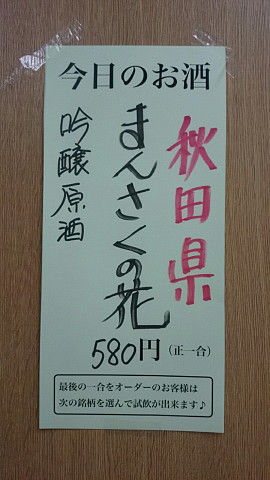 今日のお酒
秋田県
まんさくの花
吟醸原酒
580円(正一合)
最後の一合をオーダーのお客様は
次の銘柄を選んで試飲が出来ます♪